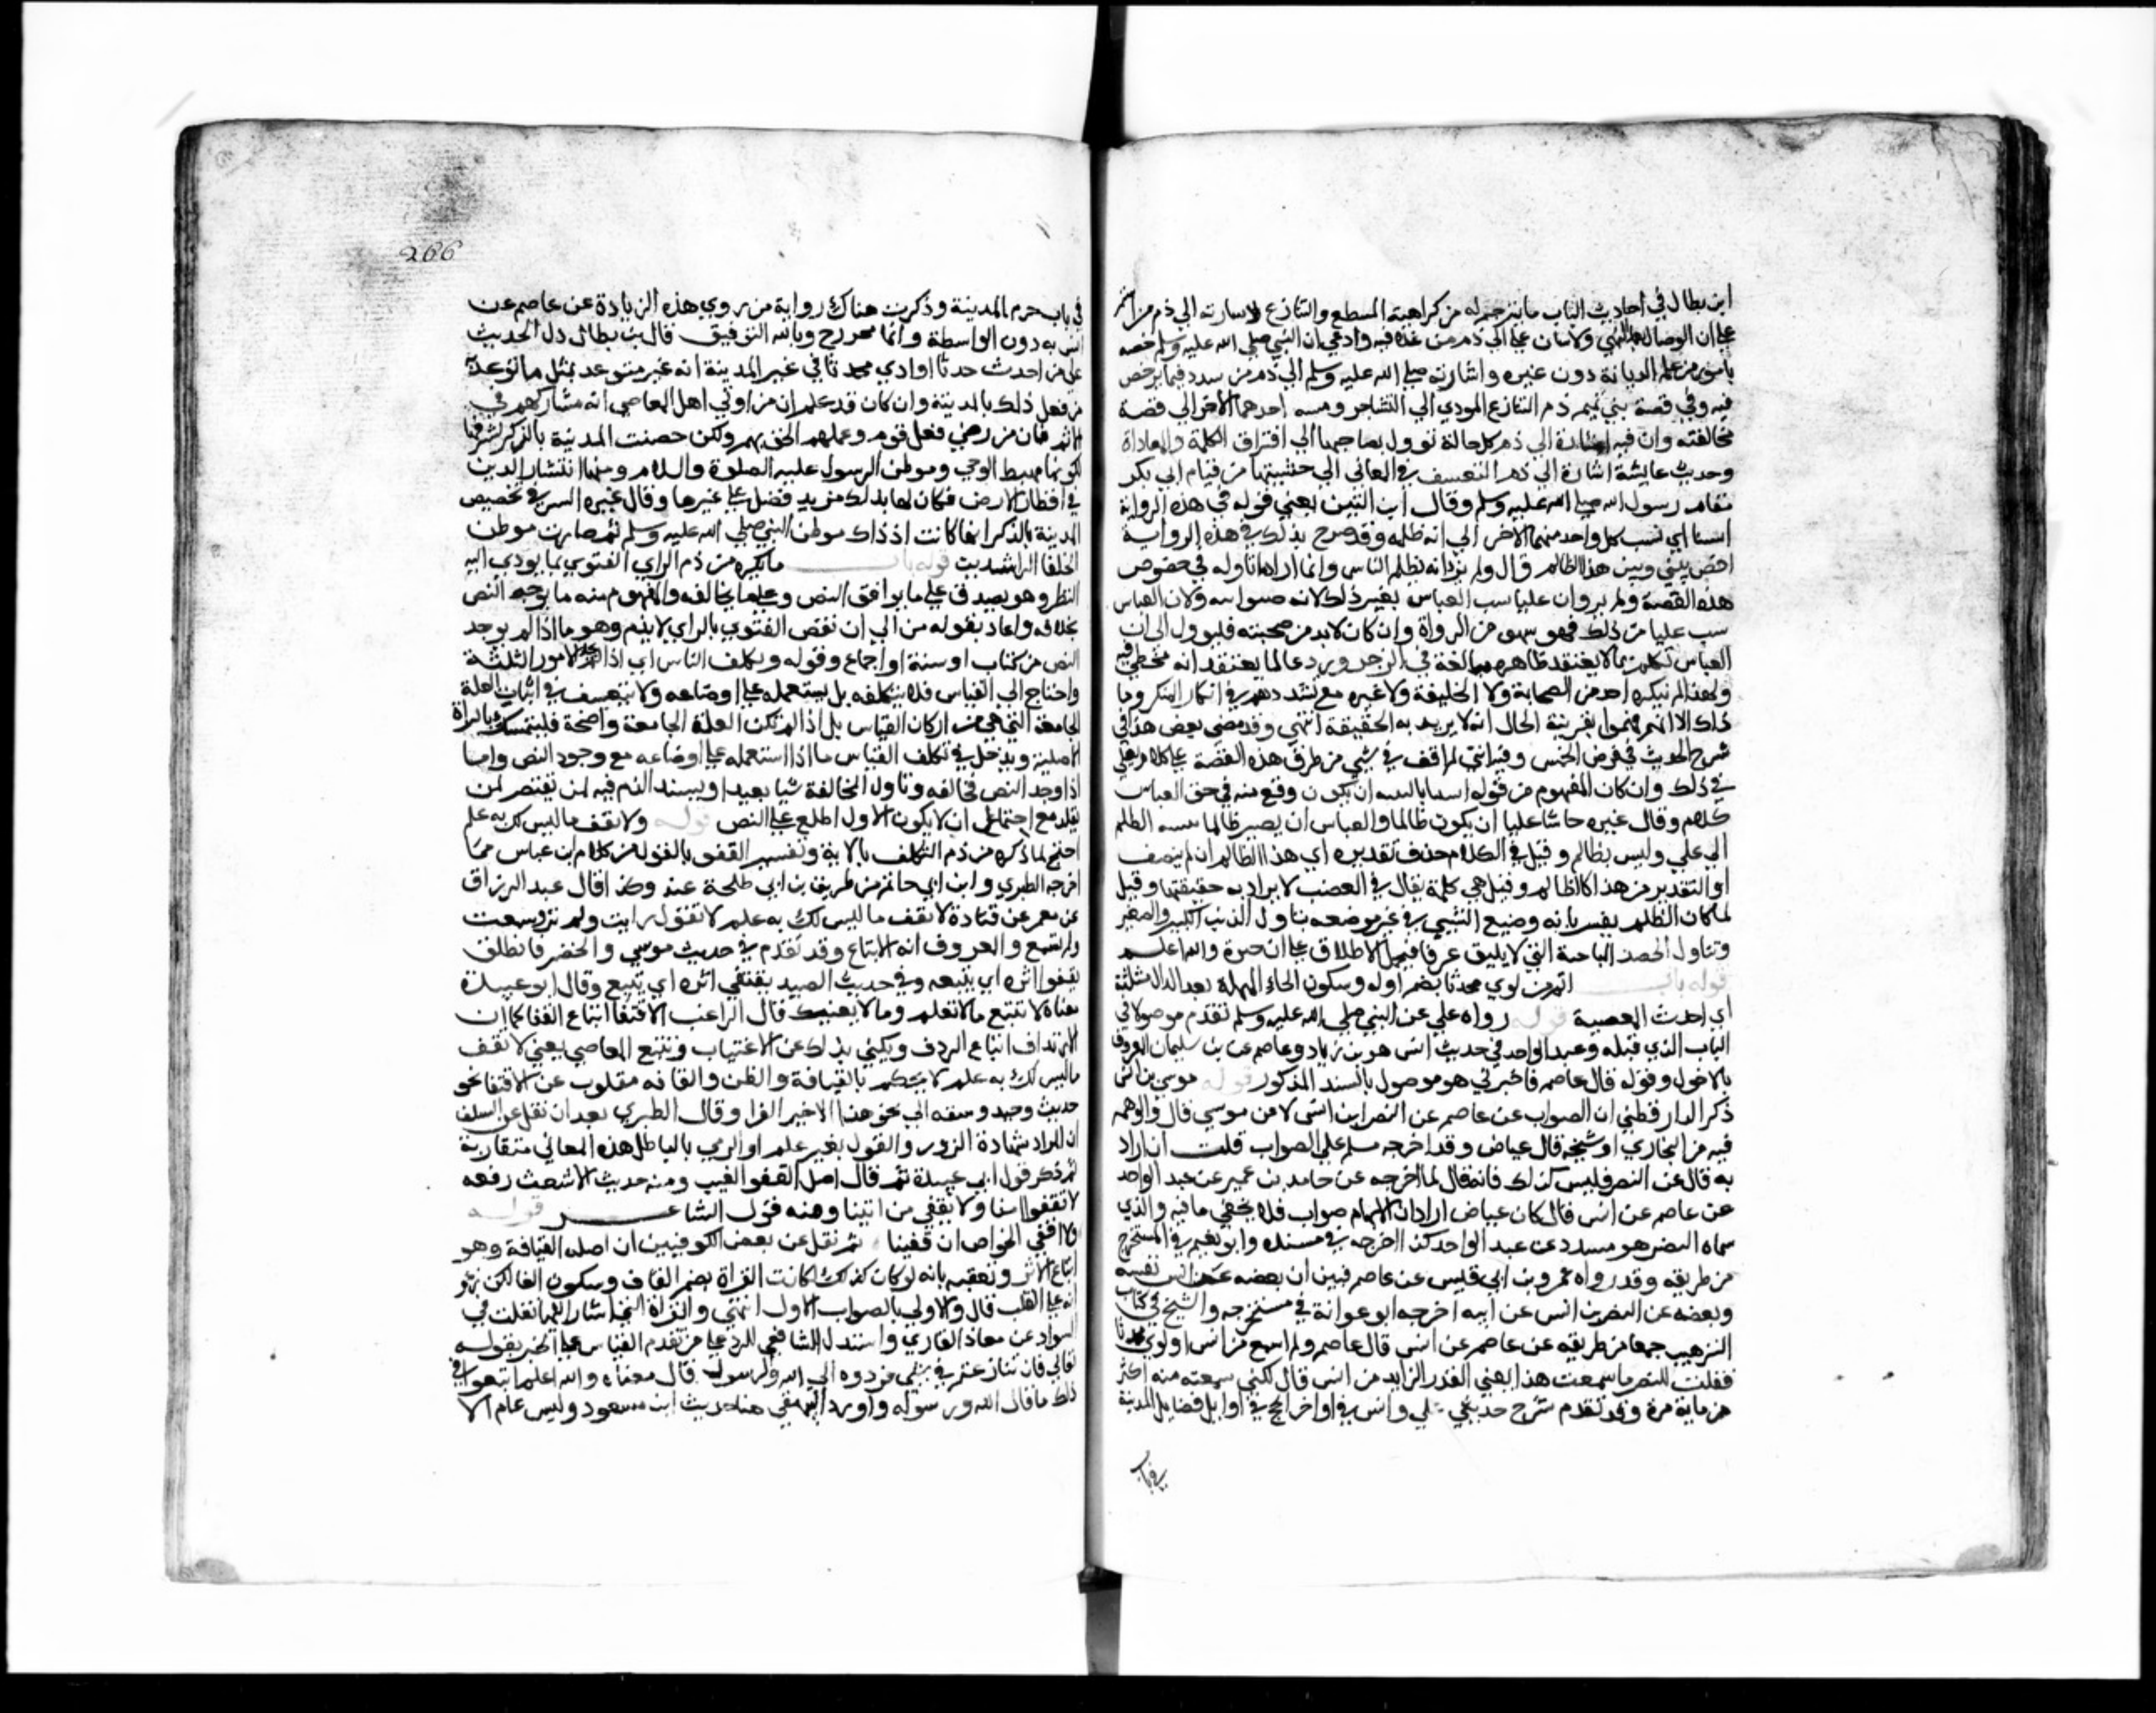 ابن بطال في احاديث الباب ما يترجم له من كراهية التنطع والتنازع لاشارته الي ذم من استمر
علي ان الوصال بعد النهي ولاشارة علي الي ذم من غلا فيه وادعي ان النبي صلي الله عليه وسلم خصه
بامور من علم الديانة دون غيره واشارته صلي الله عليه وسلم الي ذم من شدد فيما ترخص
فيه وفي قصة بني تميم ذم التنازع المودي الي التشاجر ونسبة احدهما الاخر الي قصد
مخالفته وان فيه اشارة الي ذم كل حالة تؤول بصاحبها الي افتراق الكلمة والمعاداة
وحديث عايشة اشارة الي ذم التعسف في المعاني التي خشيتها من قيام ابي بكر
مقام رسول الله صلي الله عليه وسلم وقال ابن التين يعني قوله في هذه الرواية
استبا اي نسب كل واحد منهما الاخر الي انه ظلمه وقد صرح بذلك في هذه الرواية
اقض بيني وبين هذا الظالم قال ولم يرد انه يظلم الناس وانما اراد ما تاوله في خصوص
هذه القصة ولم يرد ان عليا سب العباس بغير ذلك لانه صنو ابيه ولا ان العباس
سب عليا من ذلك فهو سهو من الرواة وان كان لابد من صحته فليؤول الي ان
العباس تكلم بما لا يعتقد ظاهره مبالغة في الزجر وردعا لما يعتقد انه مخطي فيه
ولهذا لم ينكره احد من الصحابة ولا الخليفة ولا غيره مع تشددهم في انكار المنكر وما
ذاك الا انهم فهموا بقرينة الحال انه لا يريد به الحقيقة انتهي وقد مضي بعض هذا في
شرح الحديث في فرض الخمس وفيه انني لم اقف في شي من طرق هذه القصة علي كلام لعلي
في ذلك وان كان المفهوم من قوله استبا بالتثنية ان يكون وقع منه في حق العباس
كلام وقال غيره حاشا عليا ان يكون ظالما والعباس ان يصير ظالما بنسبة الظلم
الي علي وليس بظالم وقيل في الكلام حذف تقديره اي هذا الظالم ان لم ينصف
او التقدير من هذا كالظالم وقيل هي كلمة يقال في الغضب لا يراد به حقيقتها وقيل
لما كان الظلم يفسر بانه وضع الشي في غير موضعه تناول الذنب الكبير والصغير
وتناول الخصلة المباحة التي لا يليق عرفا فيحمل الاطلاق علي الاخيرة والله اعلم
قوله باب اثم من اوي محدثا بضم اوله وسكون الحاء المهملة بعد الدال مثلثة
اي احدث المعصية قوله رواه علي عن النبي صلي الله عليه وسلم تقدم موصولا في
الباب الذي قبله وعبد الواحد في حديث انس هو بن زياد وعاصم هو بن سليمان المعروف
بالاحول وقوله قال عاصم فاخبرني هو موصول بالسند المذكور قوله موسي بن انس
ذكر الدارقطني ان الصواب عن عاصم عن النضر ابن انس لا من موسي قال والوهم
فيه من البخاري او شيخه قال عياض وقد اخرجه مسلم علي الصواب قلت ان اراد
به قال عن النضر فليس كذلك فانه قال لما اخرجه عن حامد بن عمير عن عبد الواحد
عن عاصم عن انس قال كان عياض اراد ان الابهام صواب فلا يخفي ما فيه والذي
سماه النضر هو مسدد عن عبد الواحد كذا اخرجه في مسنده وابو نعيم في المستخرج
من طريقه وقد رواه عمرو بن ابي قيس عن عاصم فبين ان بعضه عن انس نفسه
وبعضه عن النضر بن انس عن ابيه اخرجه ابو عوانة في مستخرجه والشيخ في كتاب
الترهيب جميعا من طريقه عن عاصم عن انس قال عاصم ولم اسمع من انس او اوي محدثا
فقلت للنضر ما سمعت هذا يعني القدر الزايد من انس قال لكني سمعته منه اكثر
من ماية مرة وقد تقدم شرح حديثي علي وانس في اواخر الحج في اوايل فضايل المدينة
في باب
266
في باب حرم المدينة وذكرت هناك رواية من روي هذه الزيادة عن عاصم عن
انس بدون الواسطة وانها مدرج وبالله التوفيق قال بن بطال دل الحديث
علي من احدث حدثا او اوي محدثا في غير المدينة انه غير متوعد بمثل ما توعد به
من فعل ذلك بالمدينة وان كان قد علم ان من اوي اهل المعاصي انه مشاركهم في
الاثم فان من رضي فعل قوم وعملهم الحق بهم ولكن خصت المدينة بالذكر لشرفها
لكونها مهبط الوحي وموطن الرسول عليه الصلوة والسلام ومنها انتشار الدين
في اقطار الارض فكان لها بذلك مزيد فضل علي غيرها وقال غيره السر في تخصيص
المدينة بالذكر انها كانت اذ ذاك موطن النبي صلي الله عليه وسلم ثم صارت موطن
الخلفا الراشدين قوله باب ما يكره من ذم الراي الفتوي بما يودي اليه
النظر وهو يصدق علي ما يوافق النص وعلي ما يخالفه والمذموم منه ما يوجد النص
بخلافه واعاد بقوله من الي ان بعض الفتوي بالراي لا يذم وهو ما اذا لم يوجد
النص من كتاب او سنة او اجماع وقوله وتكلف الناس اي اذا لم يجد الامور الثلثة
واحتاج الي القياس فلا يتكلفه بل يستعمله علي اوضاعه ولا يتعسف في اثبات العلة
الجامعة التي هي من اركان القياس بل اذا لم تكن العلة الجامعة واضحة فليتمسك بالبراة
الاصلية ويدخل في تكلف القياس ما اذا استعمله علي اوضاعه مع وجود النص وما
اذا وجد النص فخالفه وتاول المخالفة شيا بعيدا ويشتد الذم فيه لمن ينتصر لمن
يقلد مع احتمال ان لا يكون الاول اطلع علي النص قوله ولا تقف ما ليس لك به علم
احتج لما ذكره من ذم التكلف بالاية وتفسير القفو بالقول من كلام ابن عباس مما
اخرجه الطبري وابن ابي حاتم من طريق بن ابي طلحة عنه وكذا قال عبد الرزاق
عن معمر عن قتادة لا تقف ما ليس لك به علم لا تقول رايت ولم تر وسمعت
ولم تسمع والمعروف انه الاتباع وقد تقدم في حديث موسي والخضر فانطلق
يقفوا اثره اي يتبعه وفي حديث الصيد يقتفي اثره اي يتبع وقال ابو عبيدة
معناه لا تتبع ما لا تعلم وما لا يعنيك قال الراغب الاقتفا اتباع القفا كما ان
الارتداف اتباع الردف ويكني بذلك عن الاغتياب وتتبع المعايب يعني لا تقف
ما ليس لك به علم لا تحكم بالقيافة والظن والقافه مقلوب عن الاقتفا نحو
جذب وجبذ وسبقه الي نحو هذا الاخير الفرا وقال الطبري بعد ان نقل عن السلف
ان المراد شهادة الزور والقول بغير علم او الرمي بالباطل هذه المعاني متقاربة
ثم ذكر قول ابي عبيدة ثم قال اصل القفو العيب ومنه حديث الاشعث رفعه
لا نقفوا امنا ولا ننتفي من ابينا ومنه قول الشاعر قوله
ولا اقفي الحواصن ان قفينا ثم نقل عن بعض الكوفيين ان اصله القيافة وهو
اتباع الاثر وتعقبه بانه لو كان كذلك لكانت القراة بضم القاف وسكون الفا لكن زعم
انه علي القلب قال والاولي بالصواب الاول انتهي والقراة التي اشار اليها نقلت في
الشواذ عن معاذ القاري واستدل الشافعي للرد علي من تقدم القياس علي الخبر بقوله
تعالي فان تنازعتم في شي فردوه الي الله والرسول قال معناه والله اعلم اتبعوا في
ذلك ما قال الله ورسوله واورد البيهقي هنا حديث ابن مسعود وليس عام الا